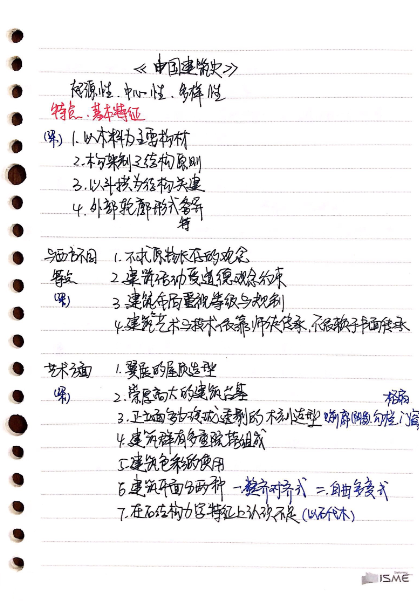 《中国建筑史》
本源性、中心性、多样性
特点、基本特征
(梁) 1. 以木料为主要构材
2. 构架制之结构原则
3. 以斗拱为结构关键
4. 外部轮廓形式
特
与西方不同 1. 不求原物长存的观念
等点 2. 建筑活动受道德观念约束
(梁) 3. 建筑布局重视等级与规制
4. 建筑艺术与技术依靠师徒传承,不依赖于书面传承
艺术方面 1. 翼展的屋顶造型
(梁) 2. 崇厚高大的建筑台基
3. 正立面多为 的木制造型 门窗
4. 建筑群有多重院落组成
5. 建筑色彩的使用
6. 建筑平面分两种 一.整齐对齐式 二.自由多变式
7. 在石结构力学特征上认识不足 (以石代木)
JSME